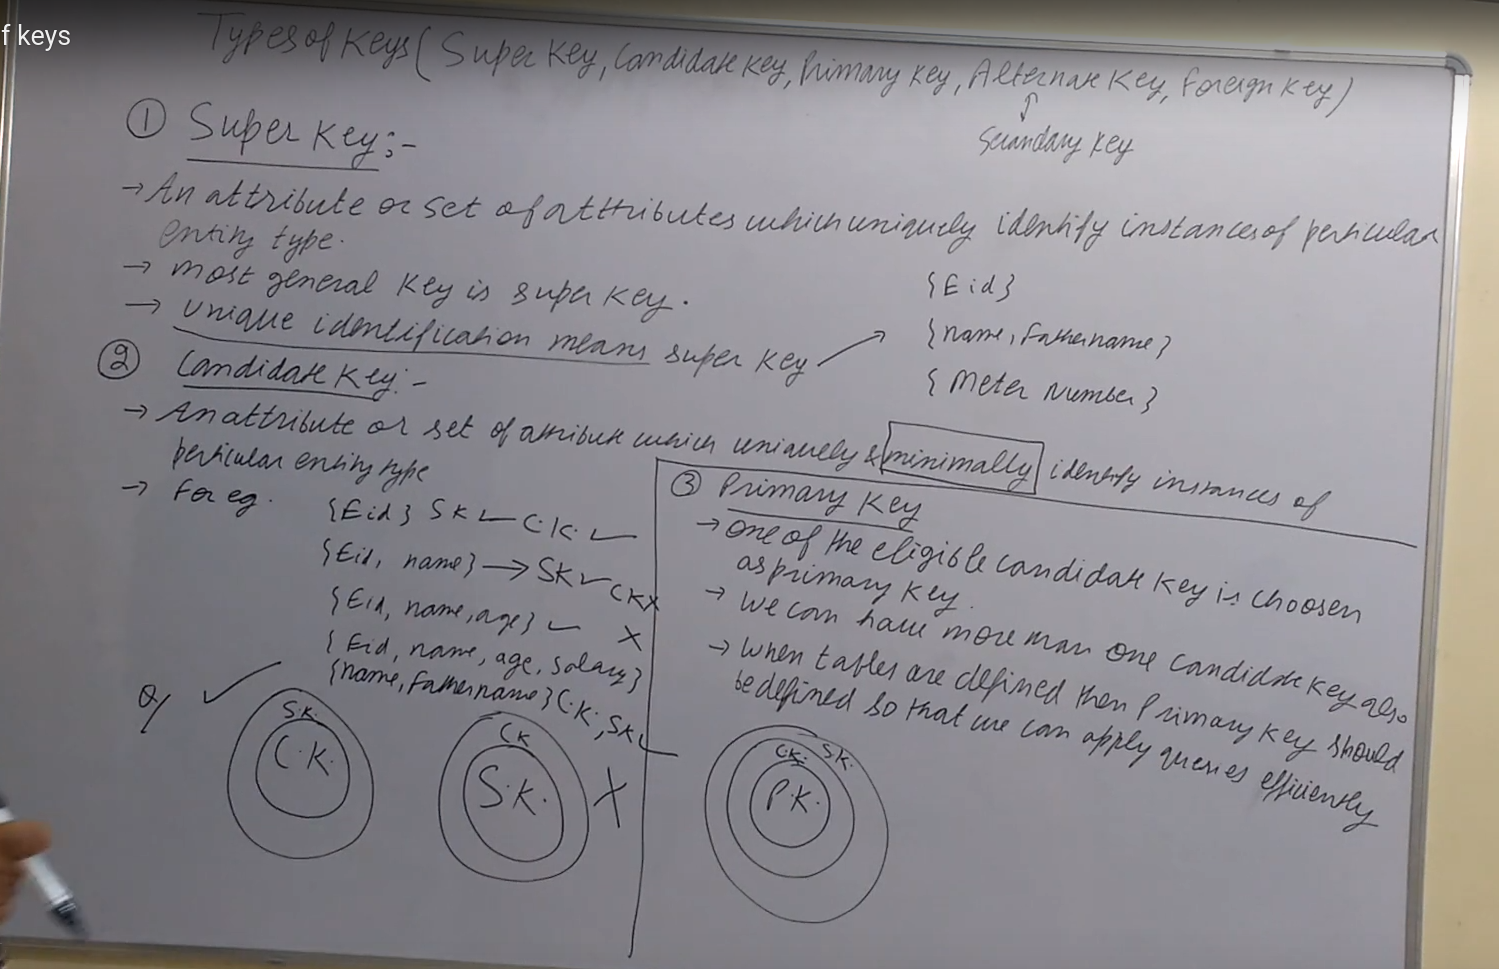 f keys
Types of Keys ( Super Key, Candidate Key, Primary Key, Alternate Key, Foreign Key)
↑
Secondary Key
① Super Key:-
→ An attribute or set of attributes which uniquely identify instances of perticular
entity type.
→ Most general Key is super key.
→ Unique identification means super key
{Eid}
{name, Fathername}
{Meter Number}
② Candidate Key:-
→ An attribute or set of attribute which uniquely & minimally identify instances of
perticular entity type
→ For eg.
{Eid} SK ✓ C.K. ✓
{Eid, name} → SK ✓ CKX
{Eid, name, age} ✓ X
{Eid, name, age, salary}
{name, Fathername} C.K., SK ✓
Q/ ✓
S.K.
C.K.
CK
S.K.
X
③ Primary Key
→ One of the eligible candidate key is choosen
as primary key.
→ We can have more than one candidate key also
→ When tables are defined then Primary key should
be defined so that we can apply queries efficiently
S.K.
C.K.
P.K.